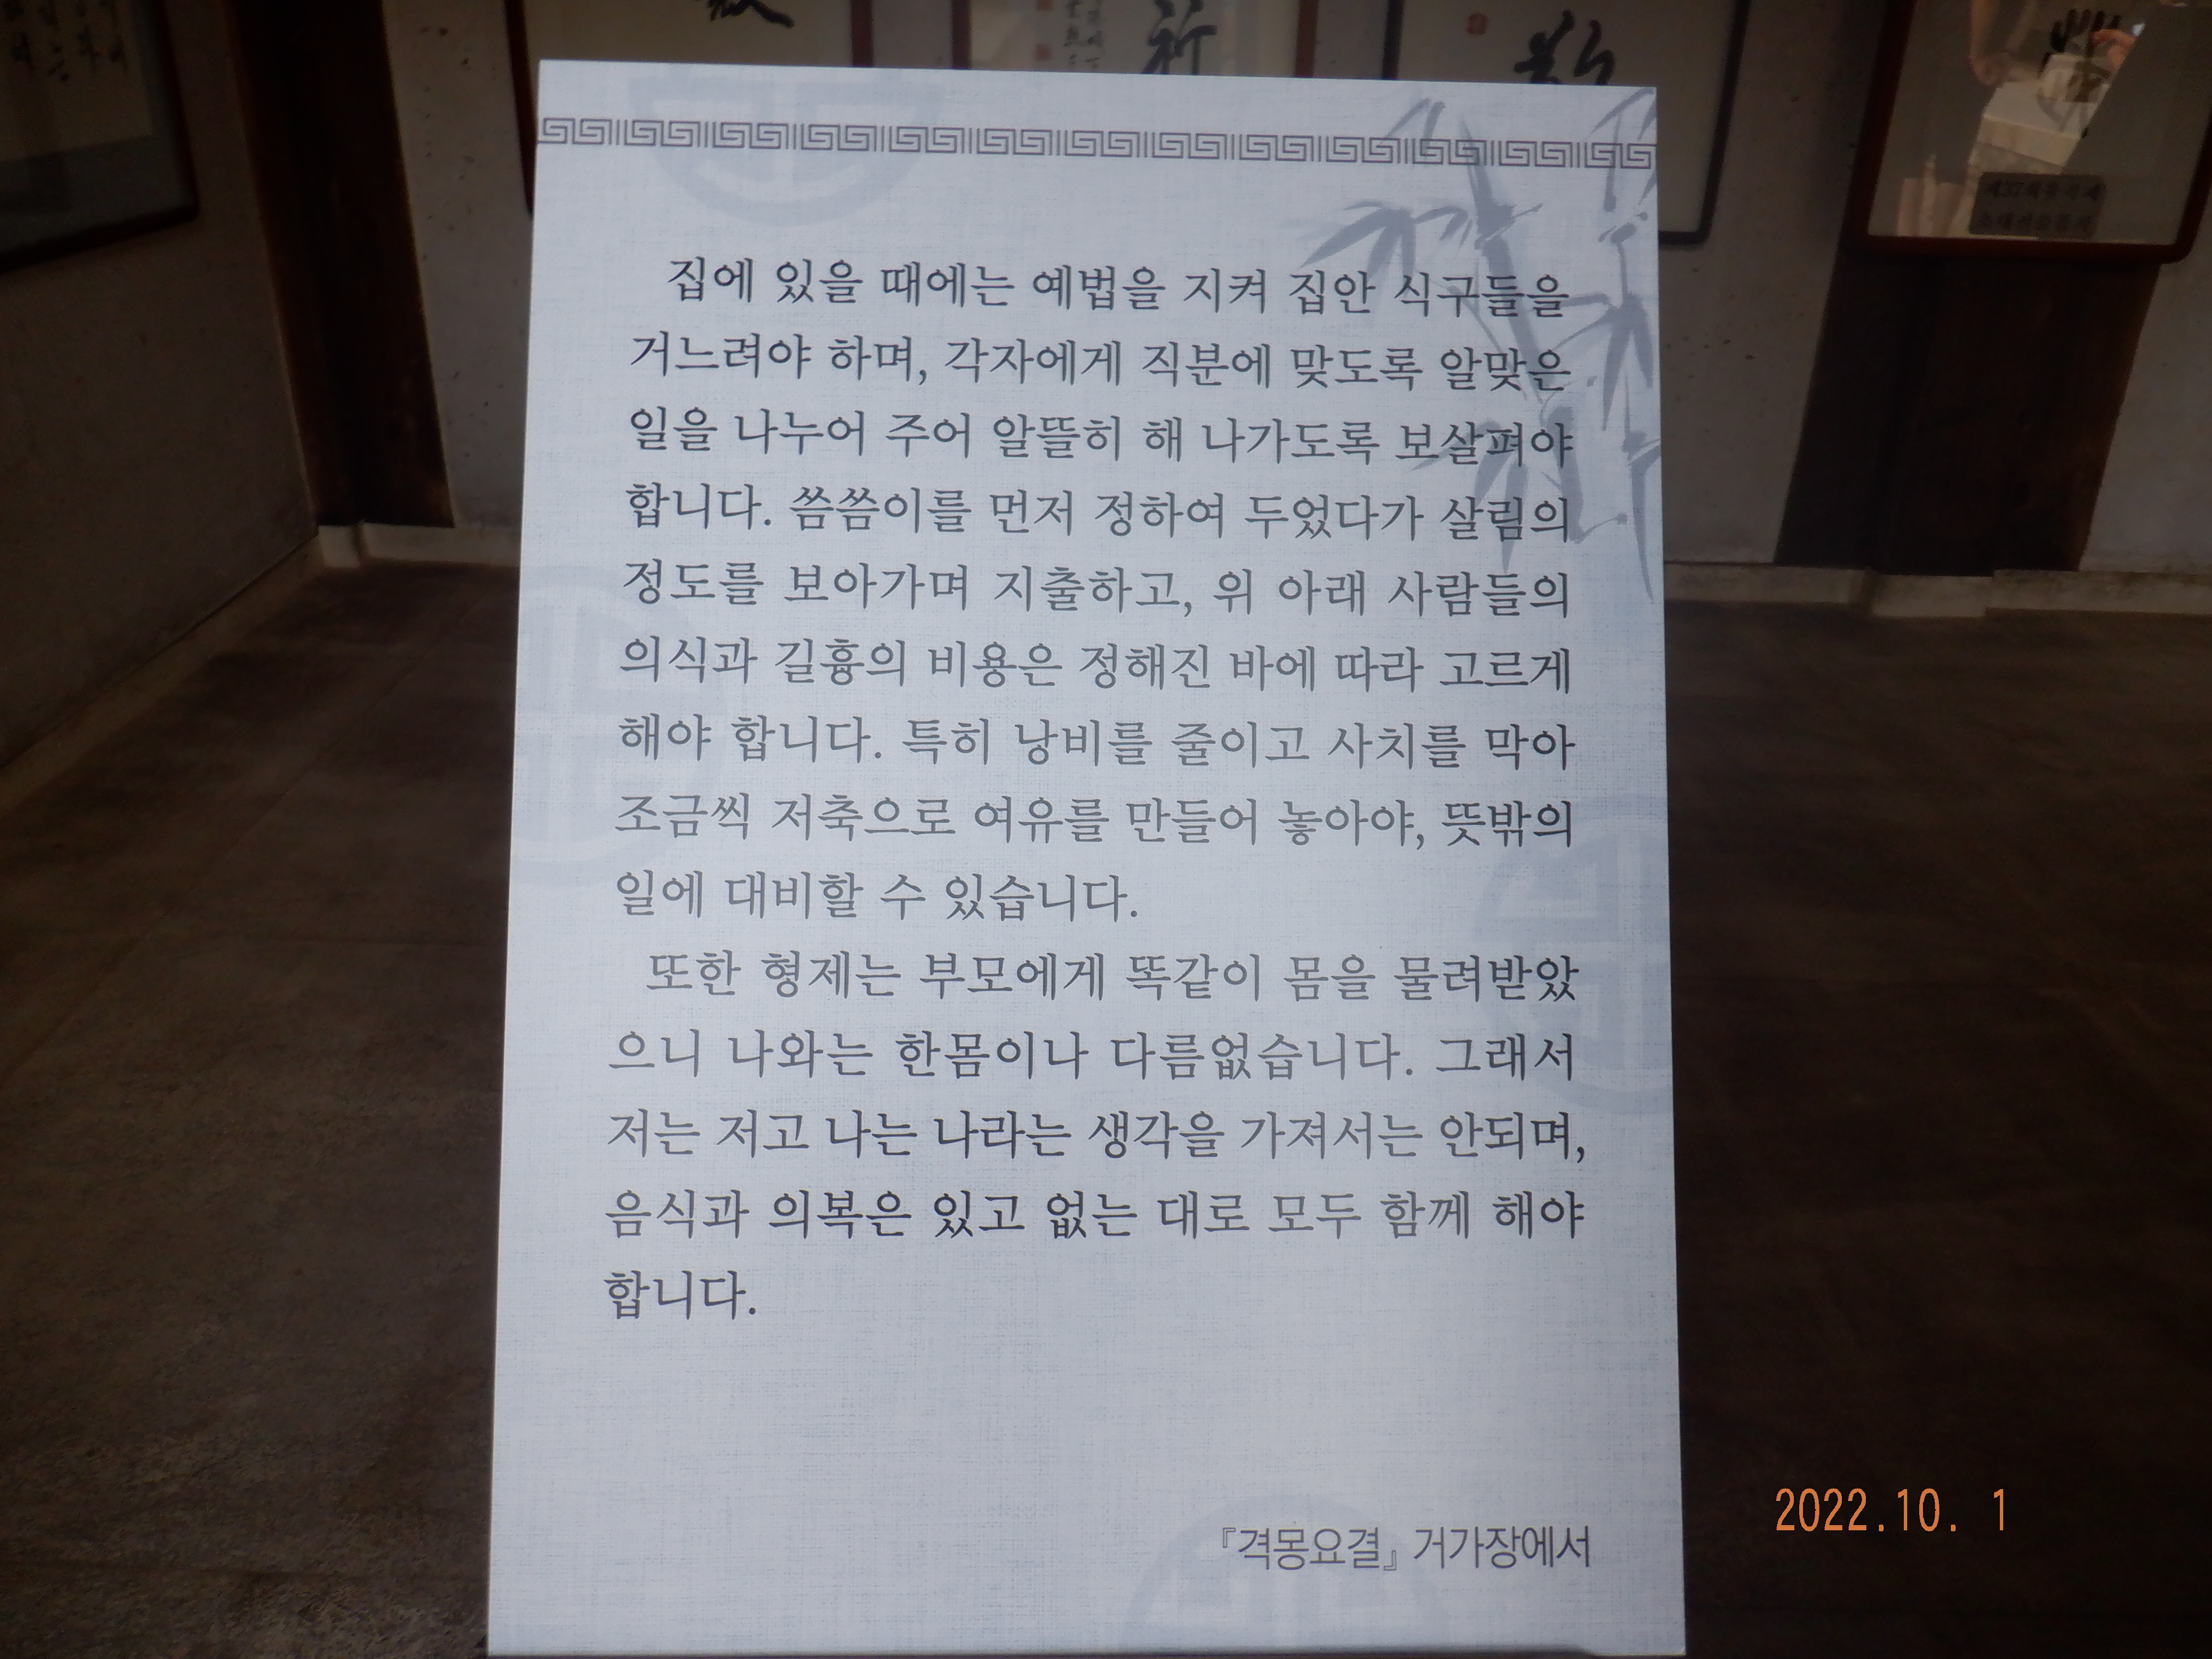 집에 있을 때에는 예법을 지켜 집안 식구들을
거느려야 하며, 각자에게 직분에 맞도록 알맞은
일을 나누어 주어 알뜰히 해 나가도록 보살펴야
합니다. 씀씀이를 먼저 정하여 두었다가 살림의
정도를 보아가며 지출하고, 위 아래 사람들의
의식과 길흉의 비용은 정해진 바에 따라 고르게
해야 합니다. 특히 낭비를 줄이고 사치를 막아
조금씩 저축으로 여유를 만들어 놓아야, 뜻밖의
일에 대비할 수 있습니다.
또한 형제는 부모에게 똑같이 몸을 물려받았
으니 나와는 한몸이나 다름없습니다. 그래서
저는 저고 나는 나라는 생각을 가져서는 안되며,
음식과 의복은 있고 없는 대로 모두 함께 해야
합니다.
『격몽요결』 거가장에서
2022.10. 1